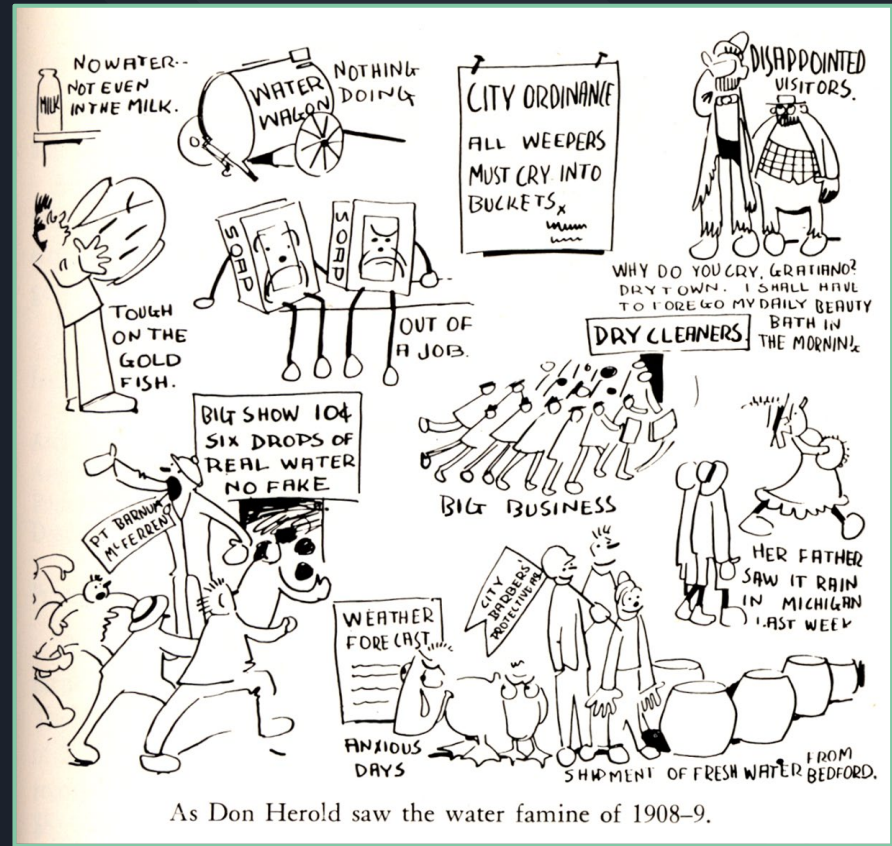 NO WATER--
NOT EVEN
IN THE MILK.
MILK
WATER
WAGON
NOTHING
DOING
CITY ORDINANCE
ALL WEEPERS
MUST CRY INTO
BUCKETS
DISAPPOINTED
VISITORS.
WHY DO YOU CRY, GRATIANO?
DRY TOWN. I SHALL HAVE
TO FOREGO MY DAILY BEAUTY
BATH IN
THE MORNING
TOUGH
ON THE
GOLD
FISH.
SOAP
SOAP
OUT OF
A JOB.
DRY CLEANERS.
BIG BUSINESS
BIG SHOW 10¢
SIX DROPS OF
REAL WATER
NO FAKE
PT BARNUM
McFERREN
HER FATHER
SAW IT RAIN
IN MICHIGAN
LAST WEEK
WEATHER
FORECAST
ANXIOUS
DAYS
CITY
BARBERS
PROTECTIVE
SHIPMENT OF FRESH WATER FROM
BEDFORD.
As Don Herold saw the water famine of 1908–9.